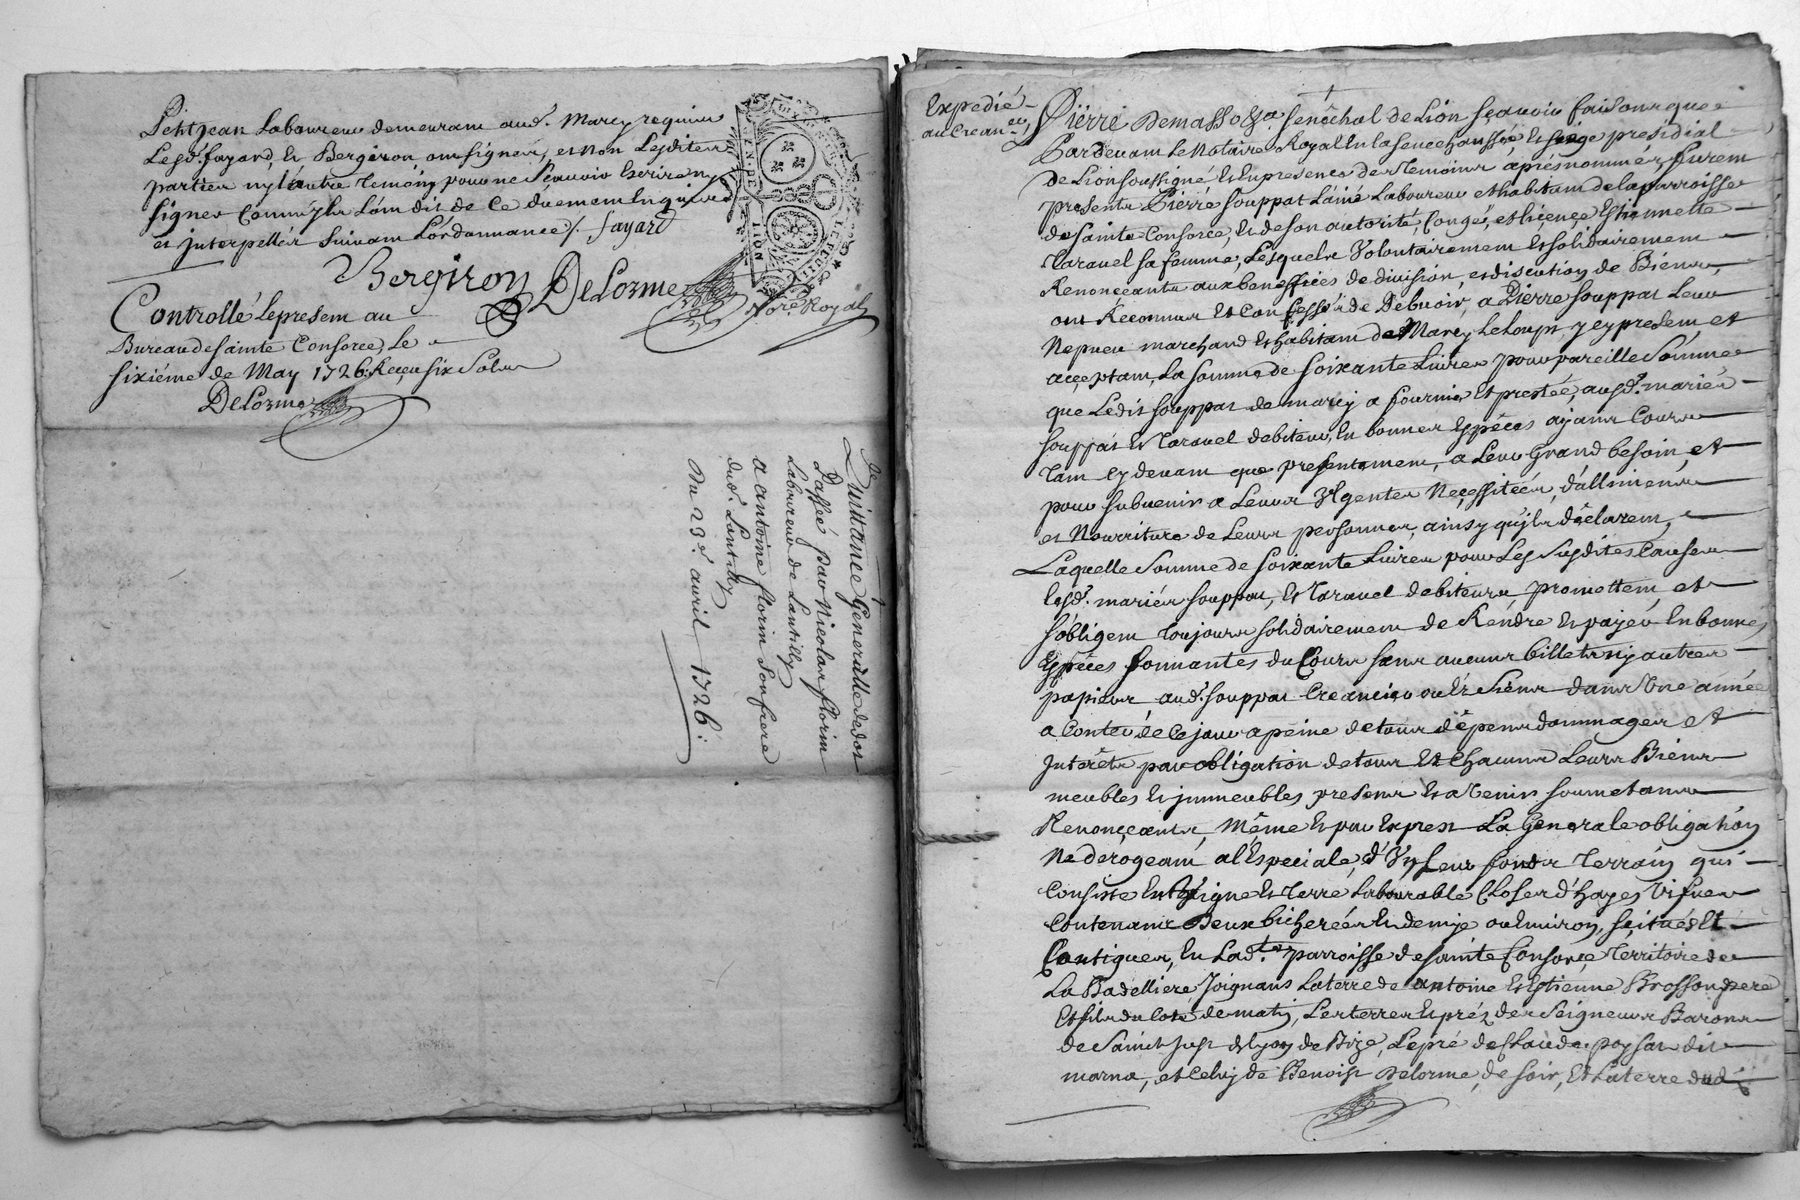 Petitjean Laboureur demeurant aud. Marcy requis
Lesd. fayard, Et Bergiron, ont signéz, et non Lesdites
parties ny l'autre temoing pour ne sçauoir Escrire ny
signer Comm'jls L'ont dit de Ce düement Enquis
et jnterpellés suiuant Lordonnance /. fayard
Bergiron DeLorme
No.re Royal
Controllé Lepresent au
Bureau desainte Consorce, Le
sixiéme de May 1726: Reçeu six Sols
DeLorme
GEN. DE LION
Quittance Generalle de dot
Passée par Nicolas florin
Laboureur de Lantilly
a antoine florin son frere
dud. Lantilly
Du 23.e auril 1726:
Expedié
au Crean.er
Piérre Demasso Esq. senéchal de Lion sçauoir faisons que
Pardeuant Le Notaire Royal En la seneschaussée Et siege presidial
de Lion soussigné Et En presence des temoins aprés nommés, furent
presents Piérré souppat L'ainé Laboureur et habitant de la parroisse
de sainte Consorce, Et de son autorité, Congé, et liçençe Estiennette
tarauel sa femme, Lesquels Volontairement Et solidairement
Renonçeants aux beneffices de diuision, et discution de Biéns,
ont Réconnus Et Confessés de Debuoir, a Pierre souppat Leur
Nepueu marchand Et habitant de Marcy Le Loup, jcy present et
acçeptant, La somme de soixante Liures pour pareille Somme
que Ledit souppat de marcy a fournie Et prestée, ausd. mariés
souppat Et tarauel debiteurs, En bonnes Espéces ayants Cours
tant cy deuant que presentement, a Leur Grand besoin, et
pour subuenir a Leurs Vrgentes Necessitées d'alliments
et Nourriture de Leurs personnes, ainsy qu'jls déclarent,
Laquelle Somme de soixante Liures pour Les Susdites Causes
Lesd. mariés souppat, Et tarauel debiteurs, promettent, et
s'obligent toujours solidairement de Rendre Et payer En bonnes
Espéces sonnantes du Cours sans aucuns billets ny autres
papiers, aud. souppat Creancier ou Es Siens dans Vne année
a Conter de Ce jour a peine de tous dépens dommages et
jnteréts par obligation de tous Et Chacuns Leurs Biéns
meubles Et jmmeubles presens Et a Venir soumetants
Renonçeants, Même Et par Expres La Generale obligation
Ne derogeant a l'Espeçiale, d'Vn Leur fonds terrain qui
Consiste En Vigne Et terre Labourable Closes d'hayes Vifues
Contenant Deux bicherées Et demje ou Enuiron, seitués Et
Contigues, En Lad. parroisse de sainte Consorce territoire de
La Badelliere, Joignans La terre de antoine Et Estienne Brosson pere
Et fils du Coté de matin, Les terres Et préz des Seigneurs Barons
de Saint Just de Lyon de Bize, Le pré de Claude paysat dit
marna, et Celuy de Benoist DeLorme, de soir, Et La terre dud.